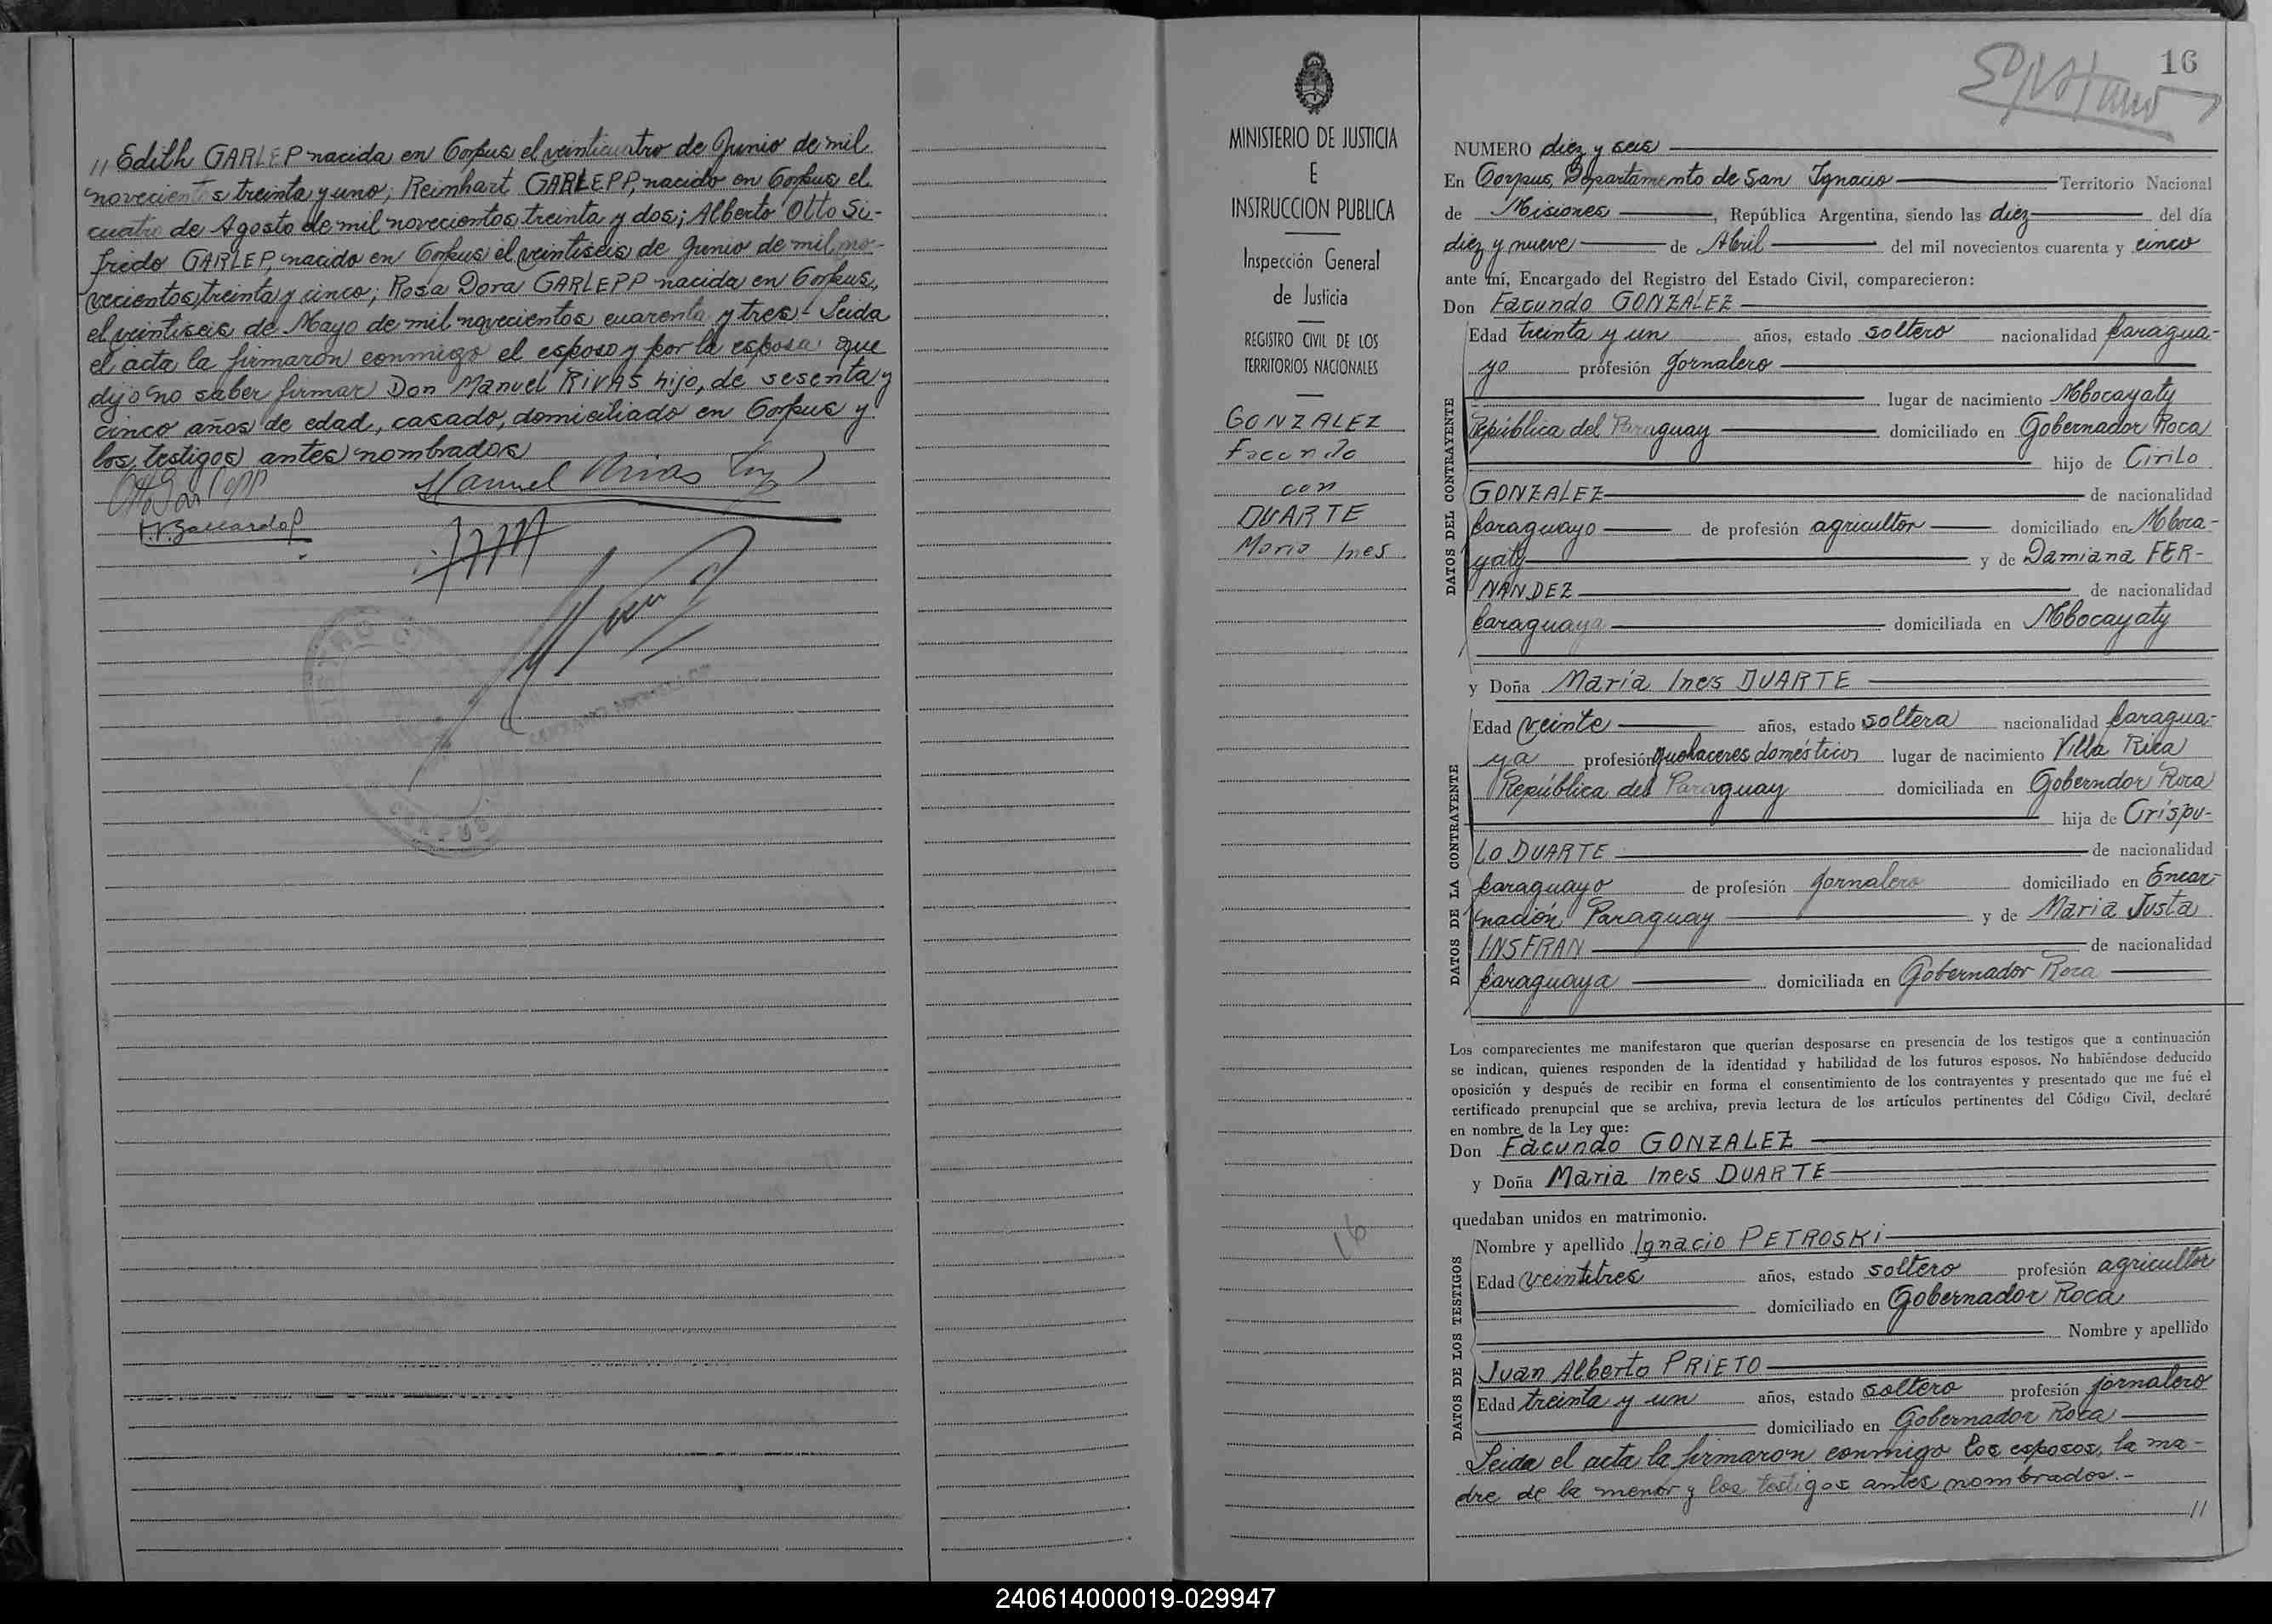 // Edith GARLEP nacida en Corpus el veinticuatro de Junio de mil
novecientos treinta y uno; Reinhart GARLEPP, nacido en Corpus el
cuatro de Agosto de mil novecientos treinta y dos; Alberto Otto Si-
fredo GARLEP, nacido en Corpus el veintiseis de Junio de mil no-
vecientos treinta y cinco; Rosa Dora GARLEPP nacida en Corpus,
el veintiseis de Mayo de mil novecientos cuarenta y tres.- Leida
el acta la firmaron conmigo el esposo y por la esposa que
dijo no saber firmar Don Manuel RIVAS hijo, de sesenta y
cinco años de edad, casado, domiciliado en Corpus y
los testigos antes nombrados
Otto Garlepp
Manuel Rivas
CORPUS
16
MINISTERIO DE JUSTICIA
E
INSTRUCCION PUBLICA
Inspección General
de Justicia
REGISTRO CIVIL DE LOS
TERRITORIOS NACIONALES
GONZALEZ
Facundo
con
DUARTE
Maria Ines
16
NUMERO diez y seis
En Corpus, Departamento de San Ignacio Territorio Nacional
de Misiones, República Argentina, siendo las diez del día
diez y nueve de Abril del mil novecientos cuarenta y cinco
ante mí, Encargado del Registro del Estado Civil, comparecieron:
Don Facundo GONZALEZ
DATOS DEL CONTRAYENTE
Edad treinta y un años, estado soltero nacionalidad paragua-
yo profesión jornalero
lugar de nacimiento Mbocayaty
República del Paraguay domiciliado en Gobernador Roca
hijo de Cirilo
GONZALEZ de nacionalidad
paraguayo de profesión agricultor domiciliado en Mboca-
yaty y de Damiana FER-
NANDEZ de nacionalidad
paraguaya domiciliada en Mbocayaty
y Doña María Ines DUARTE
DATOS DE LA CONTRAYENTE
Edad veinte años, estado soltera nacionalidad paragua-
ya profesión quehaceres domésticos lugar de nacimiento Villa Rica
República del Paraguay domiciliada en Goberndor Roca
hija de Crispu-
lo DUARTE de nacionalidad
paraguayo de profesión jornalero domiciliado en Encar-
nación Paraguay y de Maria Justa
INSFRAN de nacionalidad
paraguaya domiciliada en Gobernador Roca
Los comparecientes me manifestaron que querían desposarse en presencia de los testigos que a continuación
se indican, quienes responden de la identidad y habilidad de los futuros esposos. No habiéndose deducido
oposición y después de recibir en forma el consentimiento de los contrayentes y presentado que me fué el
certificado prenupcial que se archiva, previa lectura de los artículos pertinentes del Código Civil, declaré
en nombre de la Ley que:
Don Facundo GONZALEZ
y Doña Maria Ines DUARTE
quedaban unidos en matrimonio.
DATOS DE LOS TESTIGOS
Nombre y apellido Ignacio PETROSKI
Edad veintitres años, estado soltero profesión agricultor
domiciliado en Gobernador Roca
Nombre y apellido
Juan Alberto PRIETO
Edad treinta y un años, estado soltero profesión jornalero
domiciliado en Gobernador Roca
Leida el acta la firmaron conmigo los esposos, la ma-
dre de la menor y los testigos antes nombrados.-
//
240614000019-029947